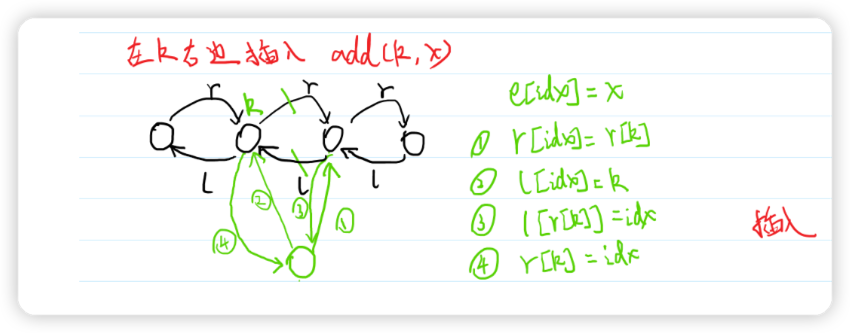 在k右边插入 add(k,x)
r r r
k
l l l
② ③ ①
④
e[idx]=x
① r[idx]=r[k]
② l[idx]=k
③ l[r[k]]=idx
④ r[k]=idx
插入